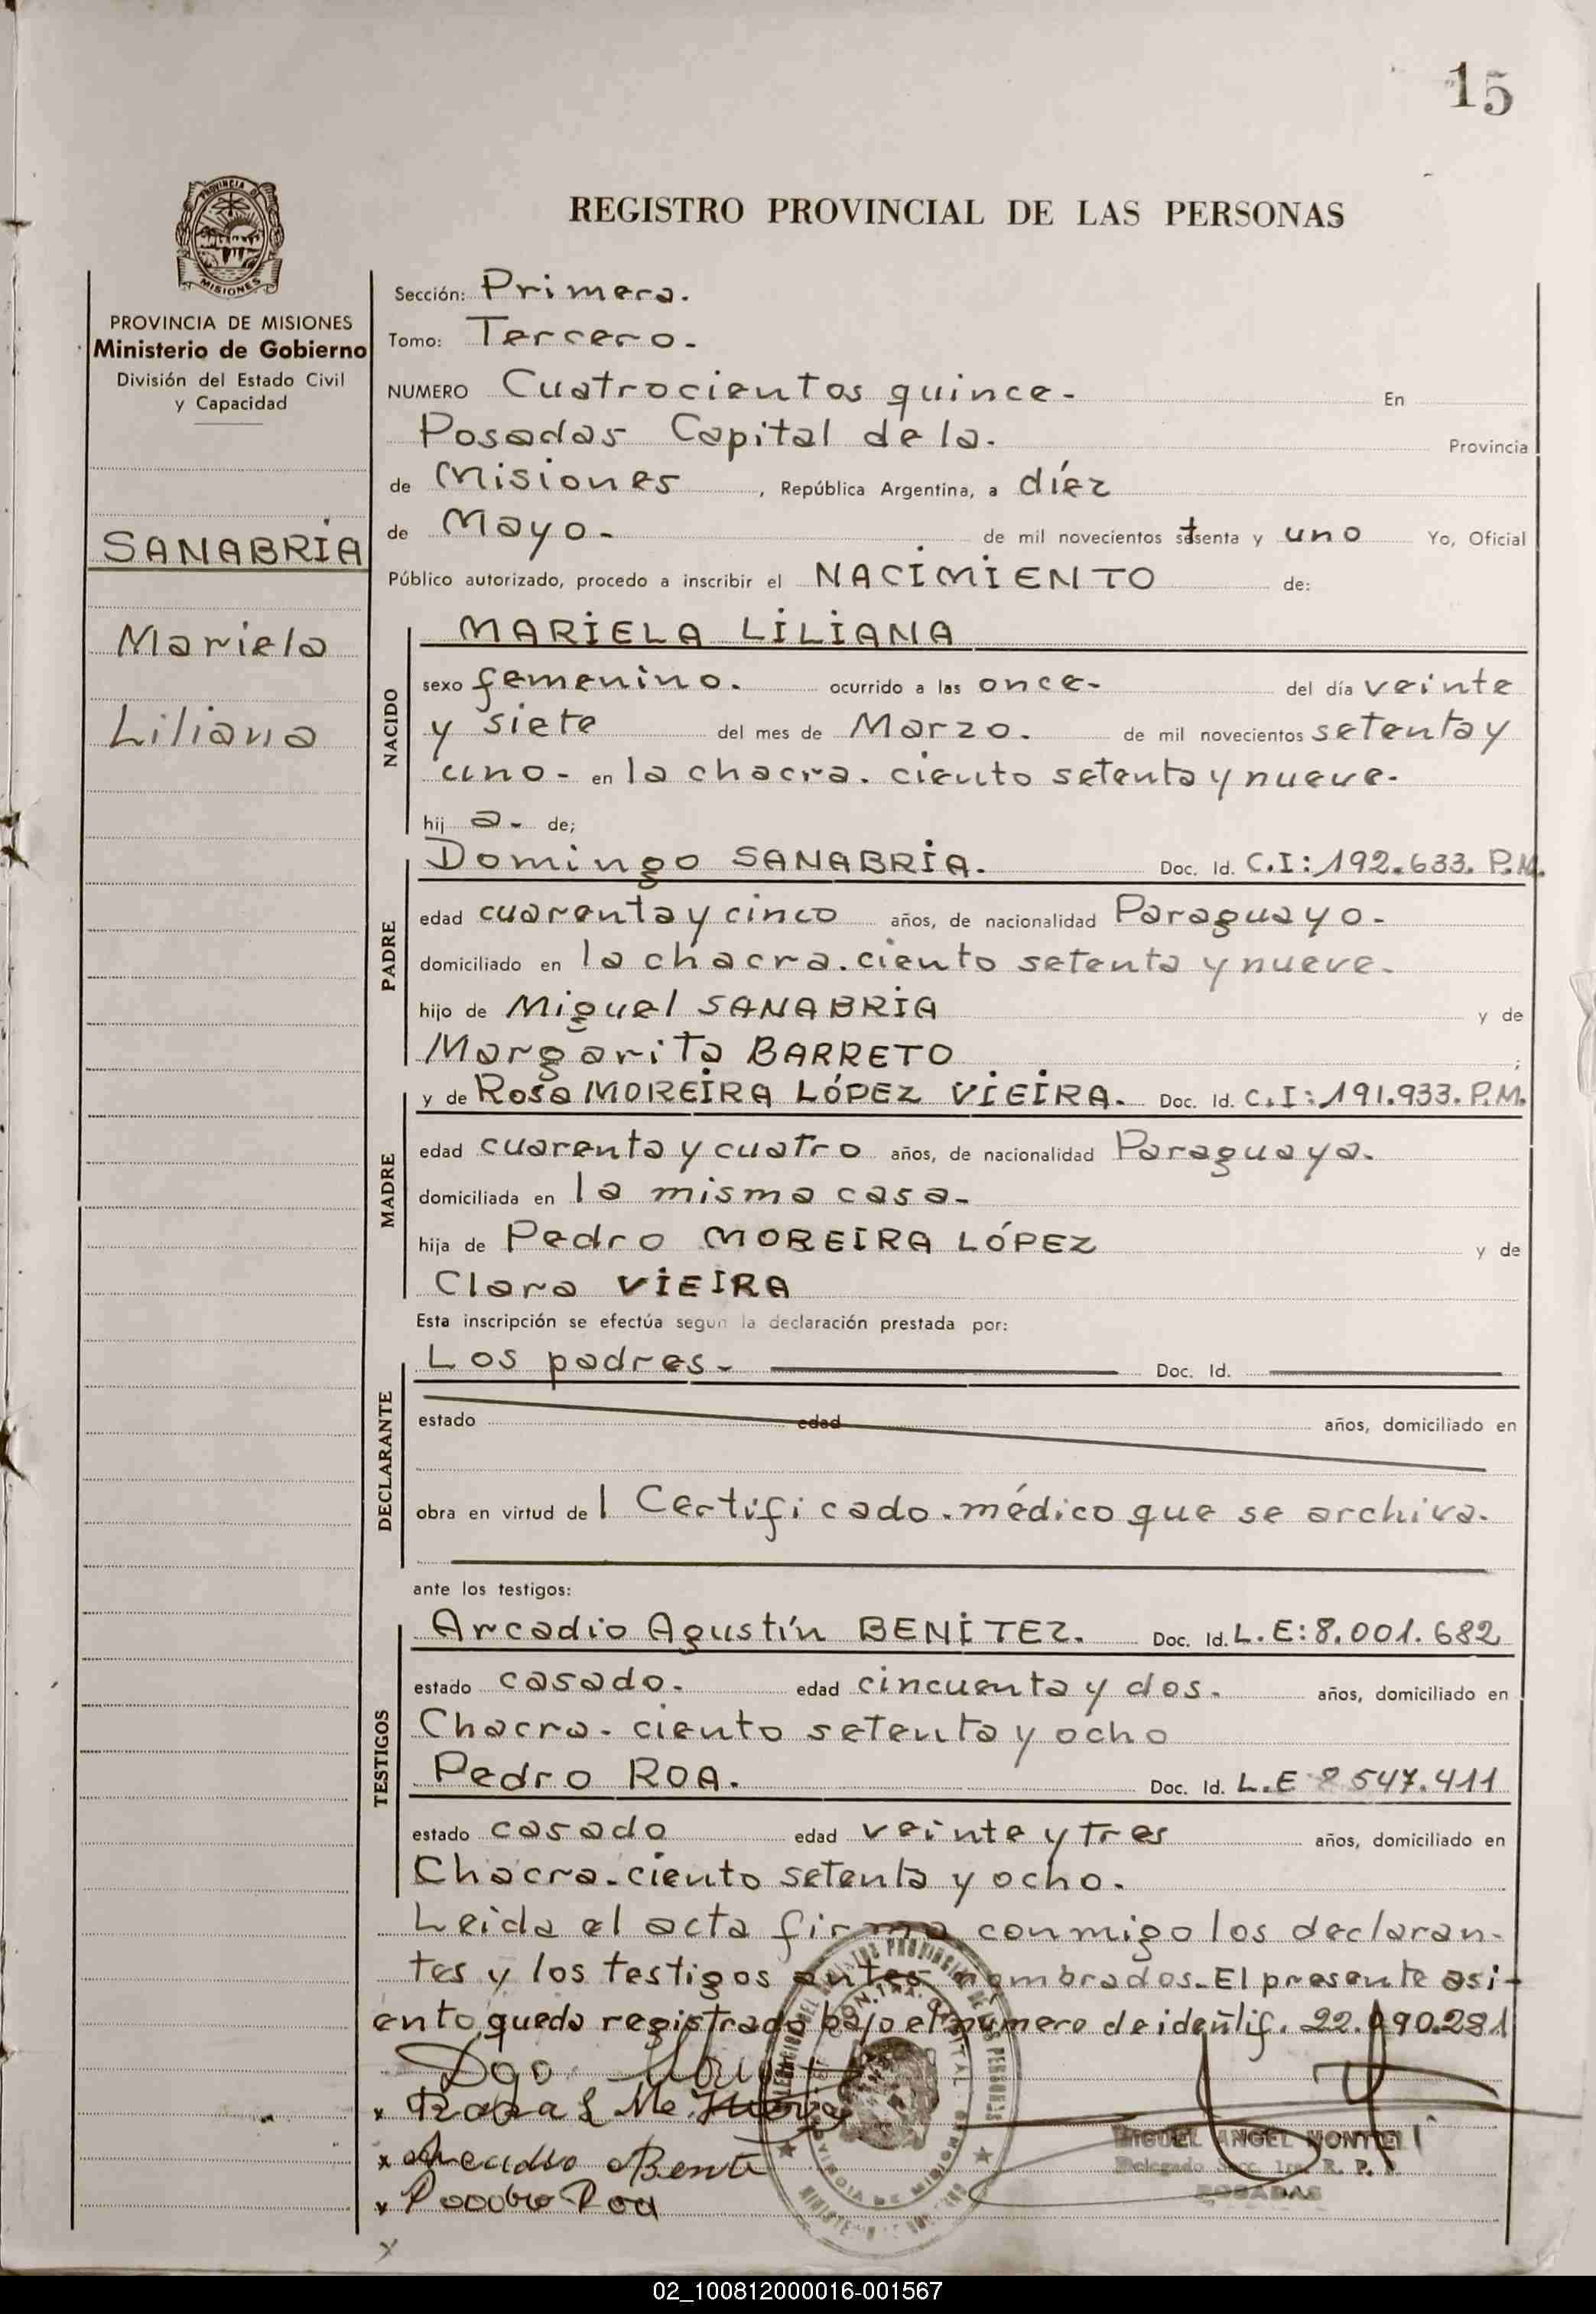 15
PROVINCIA DE
MISIONES
REGISTRO PROVINCIAL DE LAS PERSONAS
PROVINCIA DE MISIONES
Ministerio de Gobierno
División del Estado Civil
y Capacidad
SANABRIA
Mariela
Liliana
Sección: Primera.
Tomo: Tercero.-
NUMERO Cuatrocientos quince.- En
Posadas Capital de la. Provincia
de Misiones, República Argentina, a diéz
de Mayo.- de mil novecientos setenta y uno Yo, Oficial
Público autorizado, procedo a inscribir el NACIMIENTO de:
NACIDO
MARIELA LILIANA
sexo femenino. ocurrido a las once- del día veinte
y siete del mes de Marzo. de mil novecientos setenta y
uno- en la chacra. ciento setenta y nueve.
hij a.- de;
PADRE
Domingo SANABRIA. Doc. Id. C.I:192.633. P.M.
edad cuarenta y cinco años, de nacionalidad Paraguayo.-
domiciliado en la chacra.ciento setenta y nueve.
hijo de Miguel SANABRIA y de
Margarita BARRETO ;
MADRE
y de Rosa MOREIRA LÓPEZ VIEIRA. Doc. Id. C.I:191.933.P.M.
edad cuarenta y cuatro años, de nacionalidad Paraguaya.
domiciliada en la misma casa.-
hija de Pedro MOREIRA LÓPEZ y de
Clara VIEIRA
Esta inscripción se efectúa segun la declaración prestada por:
DECLARANTE
Los padres.- Doc. Id.
estado edad años, domiciliado en
obra en virtud del Certificado.médico que se archiva.
ante los testigos:
TESTIGOS
Arcadio Agustín BENÍTEZ. Doc. Id. L.E:8.001.682
estado casado. edad cincuenta y dos. años, domiciliado en
Chacra. ciento setenta y ocho
Pedro ROA. Doc. Id. L.E 8 547.411
estado casado edad veinte y tres años, domiciliado en
Chacra.ciento setenta y ocho.
Leida el acta firma conmigo los declaran-
tes y los testigos antes nombrados.El presente asi-
ento queda registrado bajo el número de identif. 22.090.281
MIGUEL ANGEL MONTIEL
Delegado Secc. 1ra. R. P. P.
POSADAS
02_100812000016-001567